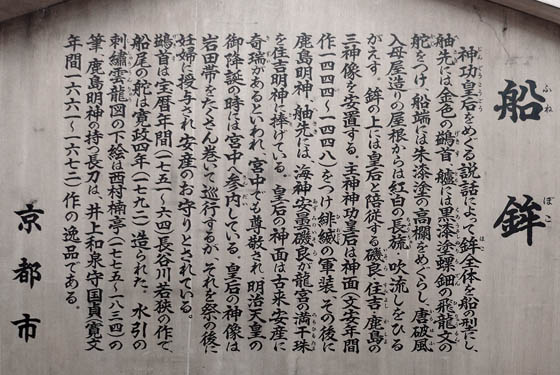 船鉾
神功皇后をめぐる説話によって鉾全体を船の型にし、
舳先には金色の鷁首、艫には黒漆塗螺鈿の飛龍文の
舵をつけ、船端には朱漆塗の高欄をめぐらし、唐破風
入母屋造りの屋根からは紅白の長旒・吹流しをひる
がえす。鉾の上には皇后と陪従する磯良・住吉・鹿島の
三神像を安置する。主神神功皇后は神面(文安年間
作一四四四〜一四四八)をつけ緋縅の軍装、その後に
鹿島明神、舳先には、海神安曇磯良が龍宮の満干珠
を住吉明神に捧げている。皇后の神面は古来安産に
奇瑞があるといわれ、宮中でも尊敬され、明治天皇の
御降誕の時には宮中へ参内している。皇后の神像は
岩田帯をたくさん巻いて巡行するが、それを祭の後に
妊婦に授与され安産のお守りとされている。
鷁首は宝暦年間(一七五一〜六四)長谷川若狭の作で、
船尾の舵は寛政四年(一七九二)造られた。水引の
刺繡雲龍図の下絵は西村楠亭(一七七五〜一八三四)の
筆、鹿島明神の持つ長刀は、井上和泉守国貞(寛文
年間一六六一〜一六七二)作の逸品である。
京都市